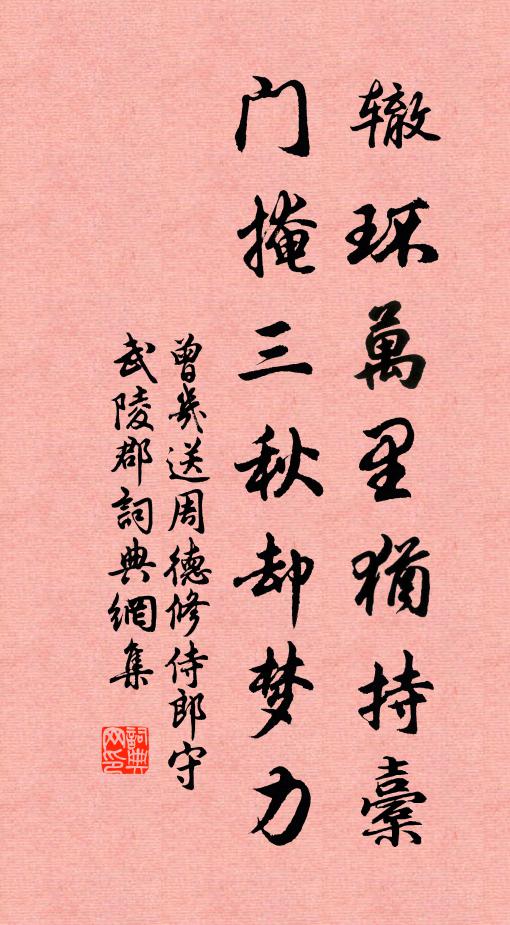 辙环萬里猶持橐
门掩三秋却梦力
曾幾送周德修侍郎守
武陵郡詞典網集
詞典网印